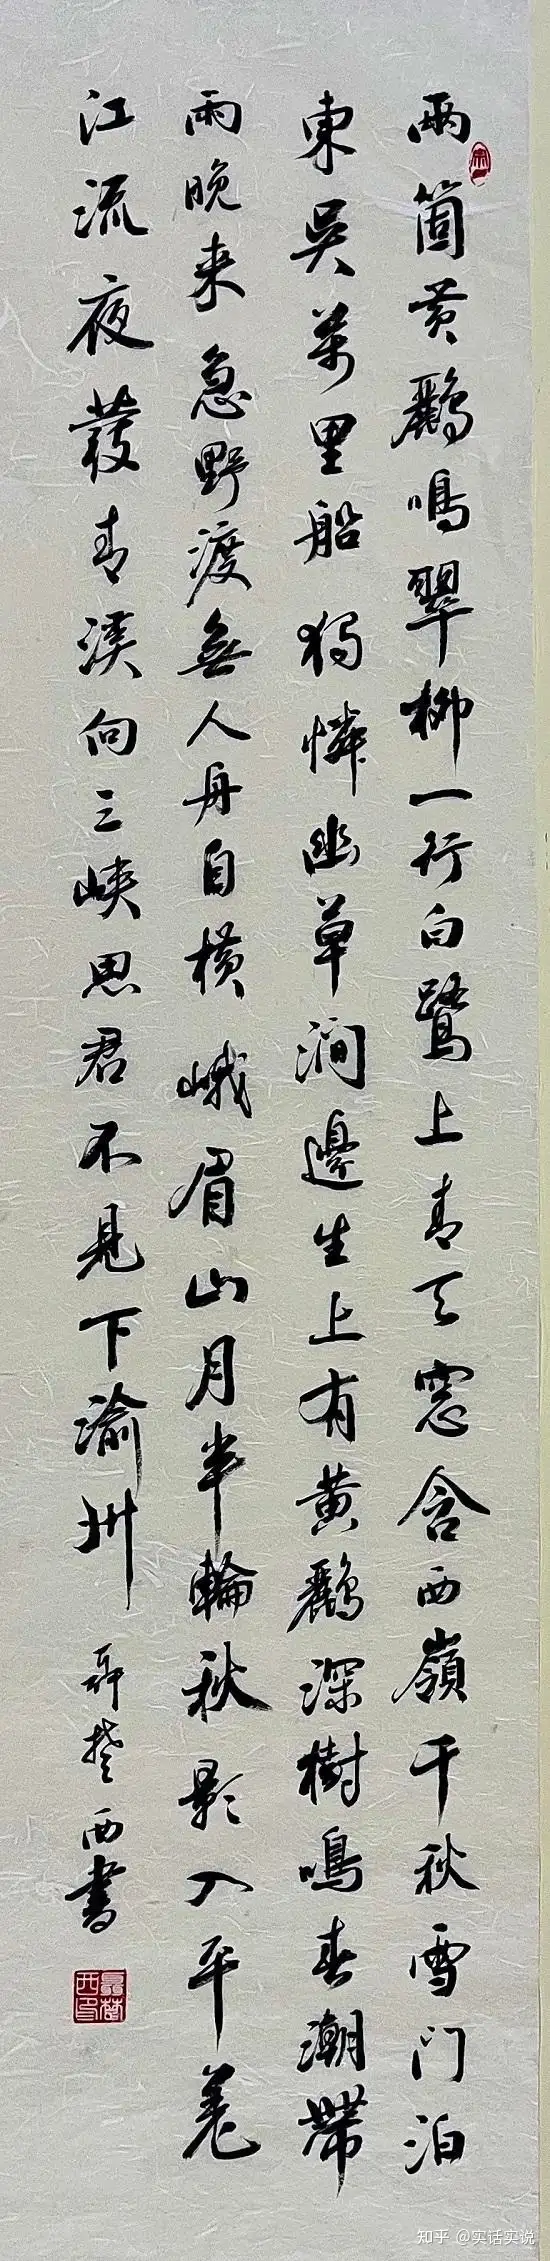 兩箇黄鸝鳴翠柳一行白鷺上青天窓含西嶺千秋雪門泊
東吳萬里船獨憐幽草澗邊生上有黄鸝深樹鳴春潮帶
雨晚来急野渡無人舟自橫峨眉山月半輪秋影入平羌
江流夜發青溪向三峽思君不見下渝州 聶楚西書
聶楚西印
知乎 @实话实说